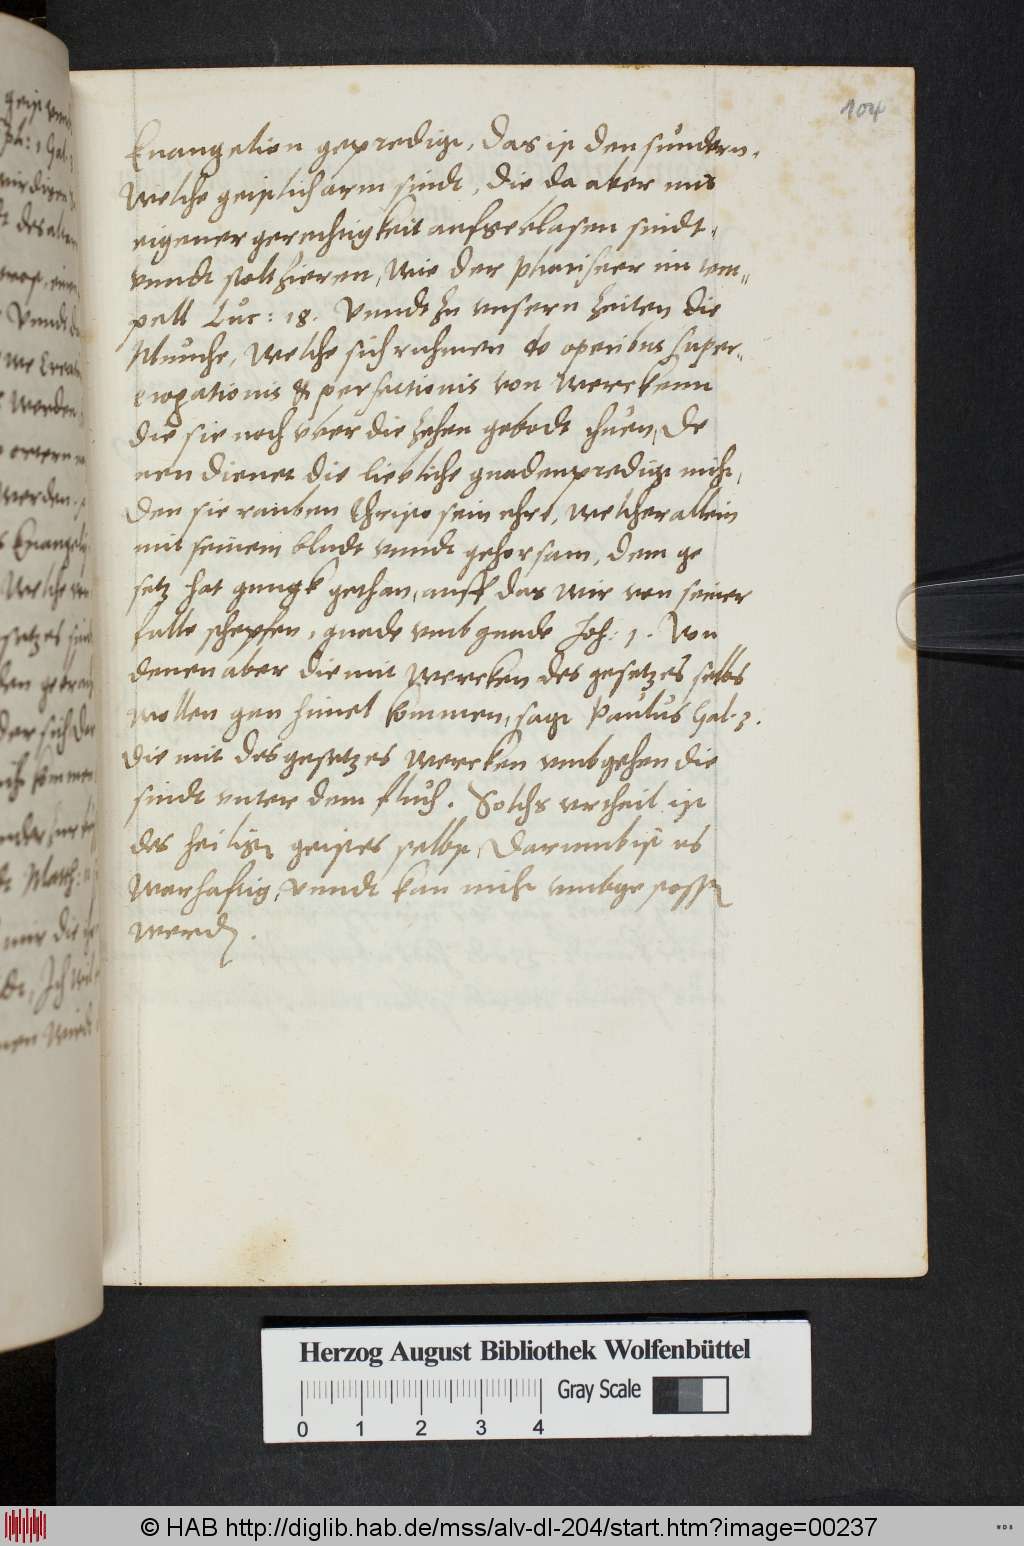 104
Euangelion geprediget, Das ist den sundern,
Welche geistlich arm sindt, die da aber mit
eigener gerechtigkeit auffgeblasen sindt,
vnndt stoltzieren, Wie der phariseer im tem-
pell Luc: 18. Vnndt zu vnsern zeiten die
Munche, Welche sich ruhmen de operibus super-
erogationis & perfectionis von werckenn
die sie noch vber die zehen gebodt thuen, De
nen dienet die liebliche gnadenpredigt nicht,
Den sie rauben Christo sein ehre, welcher allein
mit seinem bludt vnndt gehorsam, dem ge
setz hat gnugk gethan, auff das wir von seiner
fulle schepfen, gnade vmb gnade Joh: 1. Von
denen aber die mit wercken des gesetzes selbs
wollen gen himel kommen, sagt Paulus Gal. 3.
Die mit des gesetzes wercken vmbgehen die
sindt vnter dem fluch. Solchs vrtheil ist
des heiligen geistes selbst, Darumb ist es
Warhaftig, Vnndt kan nicht vmbgestossen
werden.
Herzog August Bibliothek Wolfenbüttel
Gray Scale
0 1 2 3 4
© HAB http://diglib.hab.de/mss/alv-dl-204/start.htm?image=00237